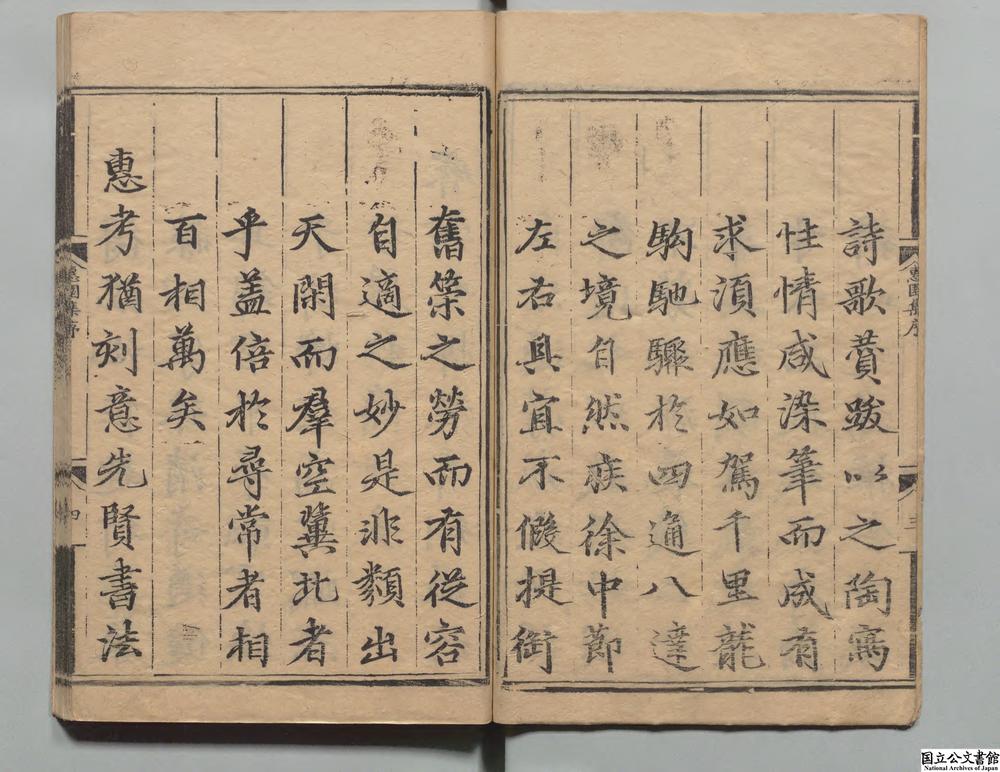 詩歌賛跋以之陶寫
性情咸染筆而成有
求須應如駕千里龍
駒馳驟於四通八達
之境自然疾徐中節
左右具宜不假提銜
惠園集序
三
奮策之勞而有從容
自適之妙是非類出
天閑而羣空冀北者
乎盖倍於尋常者相
百相萬矣
惠考猶刻意先賢書法
惠園集序
四
国立公文書館
National Archives of Japan